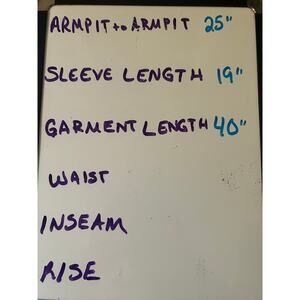 ARMPIT to ARMPIT 25"
SLEEVE LENGTH 19"
GARMENT LENGTH 40"
WAIST
INSEAM
RISE